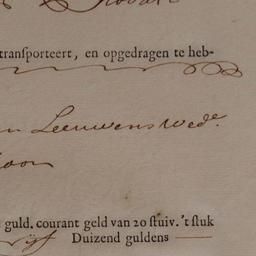 transporteert, en opgedragen te heb-
Leeuwens Wede.
guld. courant geld van 20 stuiv. 't stuk
Duizend guldens